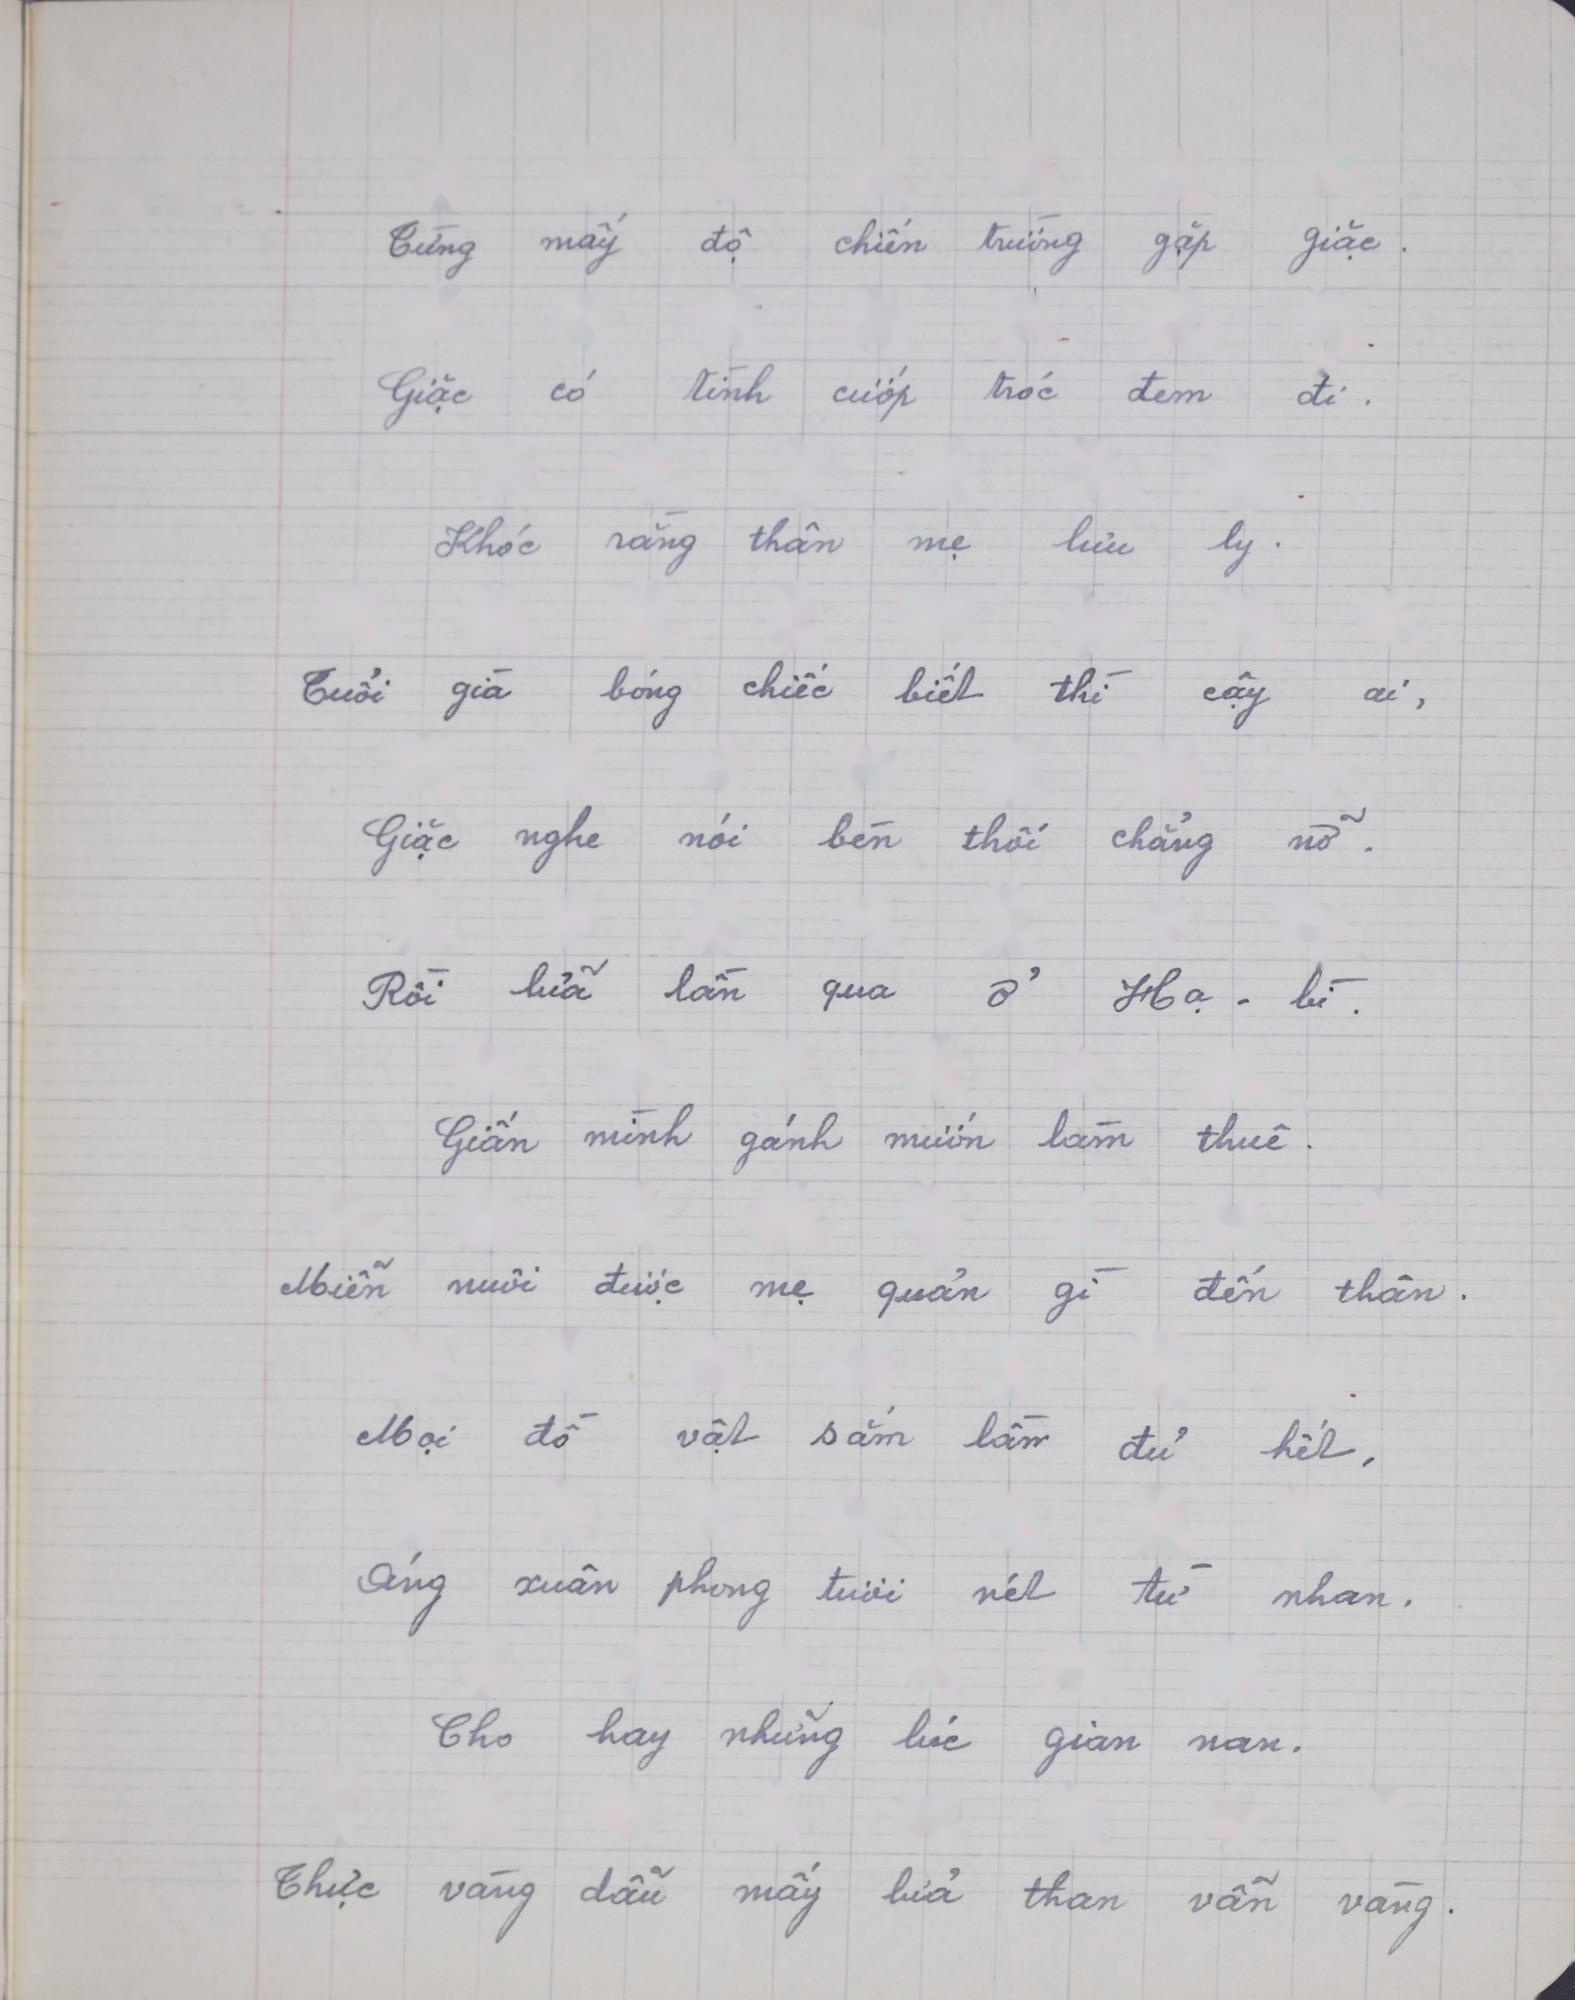 Từng mấy độ chiến trường gặp giặc.
Giặc có tình cướp tróc đem đi.
Khóc rằng thân mẹ lưu ly.
Tuổi già bóng chiếc biết thì cậy ai,
Giặc nghe nói bèn thôi chẳng nỡ.
Rồi lữa lần qua ở Hạ - bì.
Giấn mình gánh mướn làm thuê.
Miễn nuôi được mẹ quản gì đến thân.
Mọi đồ vật sắm lầm đủ hết,
Áng xuân phong tươi nét từ nhan.
Cho hay những lúc gian nan.
Thực vàng dẫu mấy lửa than vẫn vàng.